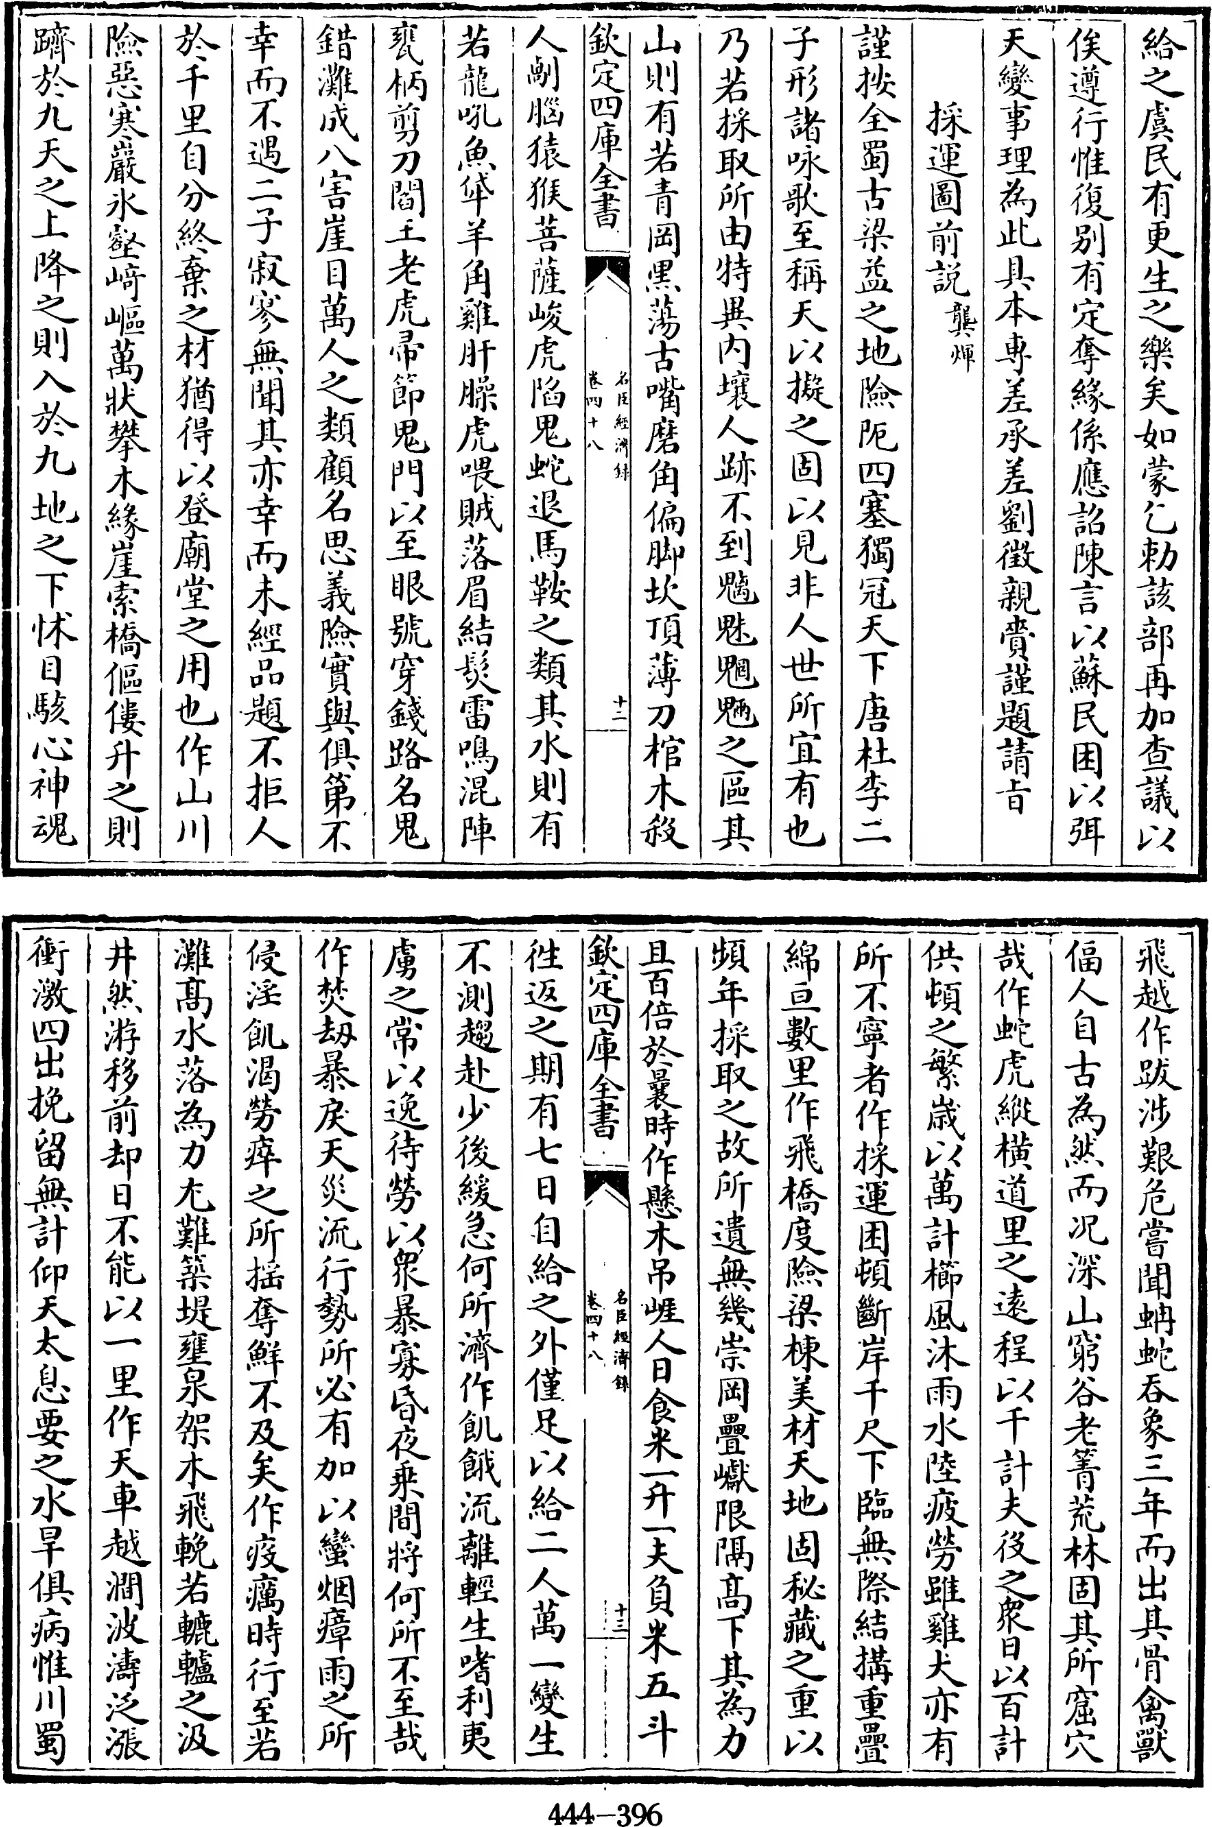 給之虞民有更生之樂矣如蒙乞勅該部再加查議以
俟遵行惟復别有定奪緣係應詔陳言以蘇民困以弭
天變事理為此具本専差承差劉徵親賫謹題請旨
採運圖前説 龔煇
謹按全蜀古梁益之地險阨四塞獨冠天下唐杜李二
子形諸咏歌至稱天以擬之固以見非人世所宜有也
乃若採取所由特異内壤人跡不到魑魅魍魎之區其
山則有若青岡黒蕩古嘴磨角偏脚坎頂薄刀棺木殺
欽定四庫全書
名臣經濟録
卷四十八
十二
人劇腦猿猴菩薩峻虎陷鬼蛇退馬鞍之類其水則有
若龍吼魚箄羊角雞肝臊虎喂賊落眉結髮雷鳴混陣
甕柄剪刀閻王老虎帚節鬼門以至眼號穿錢路名鬼
錯灘成八害崖目萬人之類顧名思義險實與俱第不
幸而不遇二子寂寥無聞其亦幸而未經品題不拒人
於千里自分終棄之材猶得以登廟堂之用也作山川
險惡寒巖氷壑﨑嶇萬狀攀木緣崖索橋傴僂升之則
躋於九天之上降之則入於九地之下怵目駭心神魂
飛越作跋涉艱危嘗聞蚺蛇吞象三年而出其骨禽獸
偪人自古為然而况深山窮谷老箐荒林固其所窟穴
哉作蛇虎縱横道里之逺程以千計夫役之衆日以百計
供頓之繁歳以萬計櫛風沐雨水陸疲勞雖雞犬亦有
所不寧者作採運困頓斷岸千尺下臨無際結搆重疊
綿亘數里作飛橋度險梁棟美材天地固秘藏之重以
頻年採取之故所遺無幾崇岡疊巘限隔髙下其為力
且百倍於曩時作懸木吊崕人日食米一升一夫負米五斗
欽定四庫全書
名臣經濟録
卷四十八
十三
徃返之期有七日自給之外僅足以給二人萬一變生
不測趨赴少後緩急何所濟作飢餓流離輕生嗜利夷
虜之常以逸待勞以衆暴寡昏夜乗間將何所不至哉
作焚劫暴戾天災流行勢所必有加以蠻烟瘴雨之所
侵淫飢渴勞瘁之所揺奪鮮不及矣作疫癘時行至若
灘髙水落為力尤難築堤壅泉架木飛輓若轆轤之汲
井然游移前却日不能以一里作天車越澗波濤泛漲
衝激四出挽留無計仰天太息要之水旱俱病惟川蜀
444-396